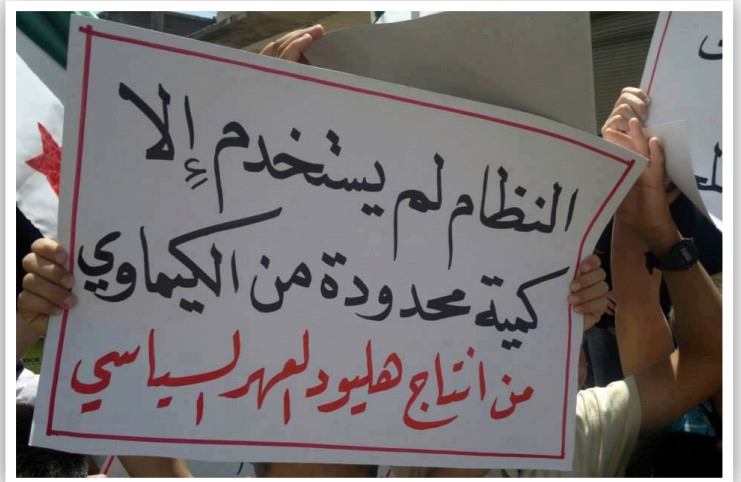 النظام لم يستخدم إلا
كمية محدودة من الكيماوي
من انتاج هليود العهر السياسي